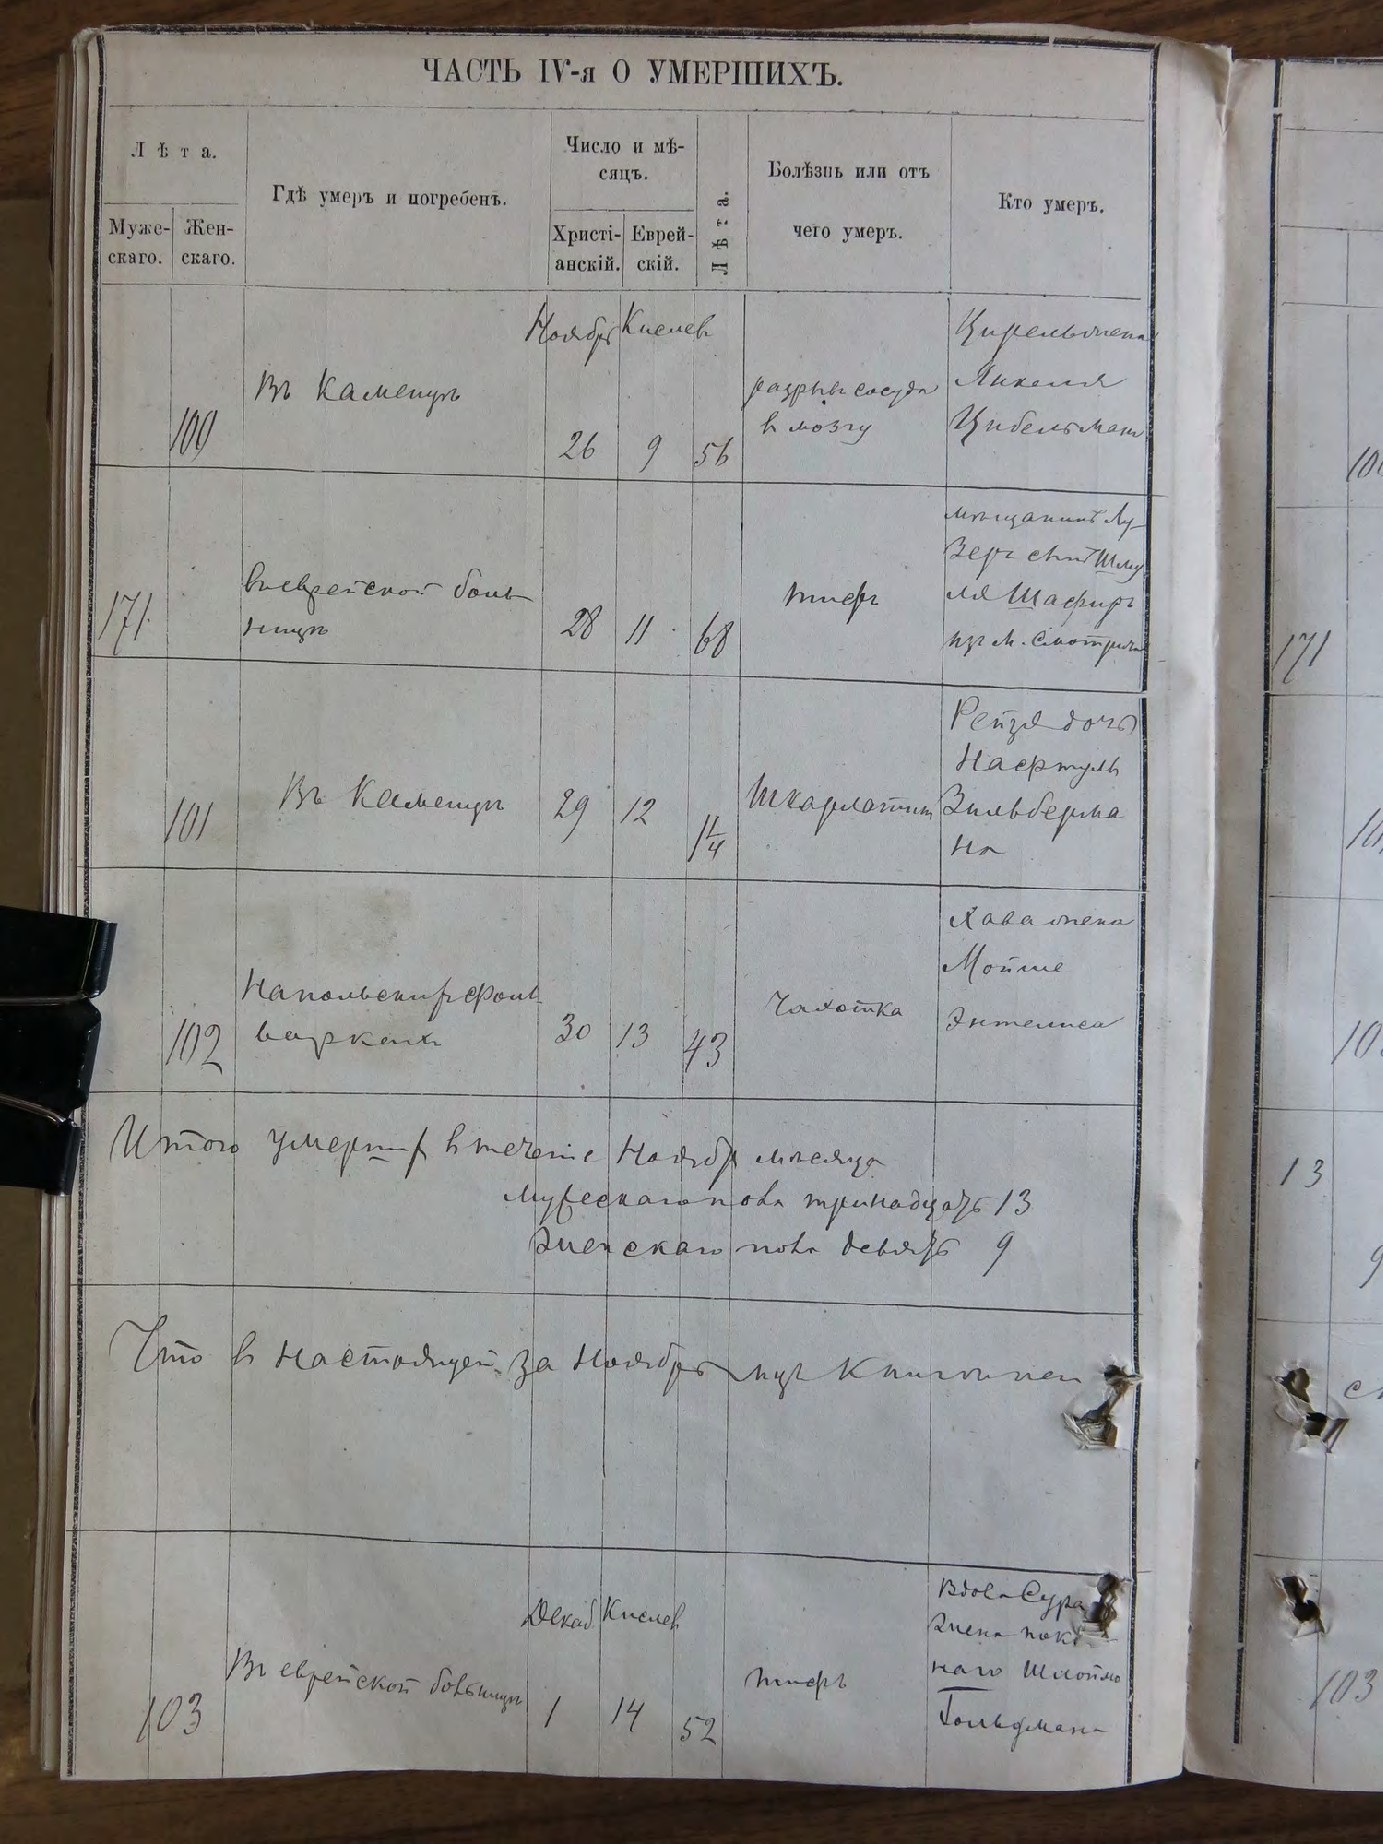 ЧАСТЬ IV-я О УМЕРШИХЪ.
Лѣта.
Муже-
скаго.
Жен-
скаго.
Гдѣ умеръ и погребенъ.
Число и мѣ-
сяцъ.
Христі-
анскій.
Еврей-
скій.
Лѣта.
Болѣзнь или отъ
чего умеръ.
Кто умеръ.
100
Въ Каменцѣ
Ноябрь Кислев
26 9 56
разрывъ сосуда
в мозгу
жена
Янкеля
Цибельман
171
в еврейской боль
ницѣ
28 11 68
тифъ
мѣщанинъ Лу-
зеръ сынъ Шму
ля Шафиръ
изъ м. Смотрича
101
Въ Каменцѣ
29 12 1 1/4
Шкарлатин
Рейзя дочь
Нафтуль
Зильберма
на
102
На польских фоль
варках
30 13 43
Чахотка
Хава жена
Мойше
Энтелиса
Итого умерших в течение Ноябр месяца
мужескаго пола тринадцать 13
женскаго пола девять 9
Что в настоящей за Ноябрь мц книги
103
Въ еврейской больницѣ
Декаб. Кислев
1 14 52
тифъ
Вдова Сура
жена покой
наго Шлоймо
Гольдман
171
13
9
103